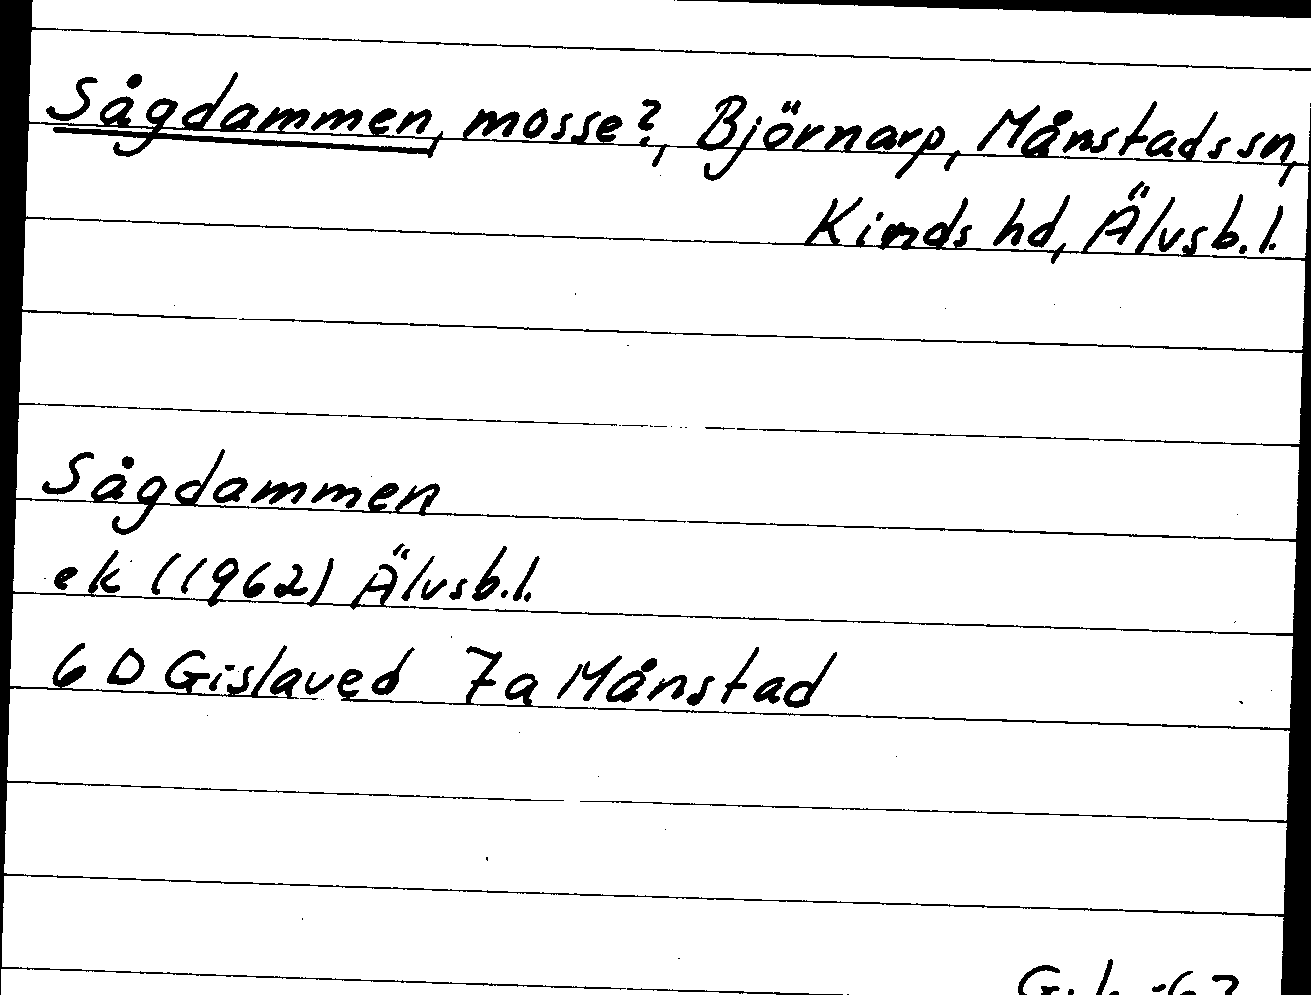 Sågdammen, mosse?, Björnarp, Månstads sn,
Kinds hd, Älvsb.l.
Sågdammen
ek (1962) Älvsb.l.
6 D Gislaved 7a Månstad